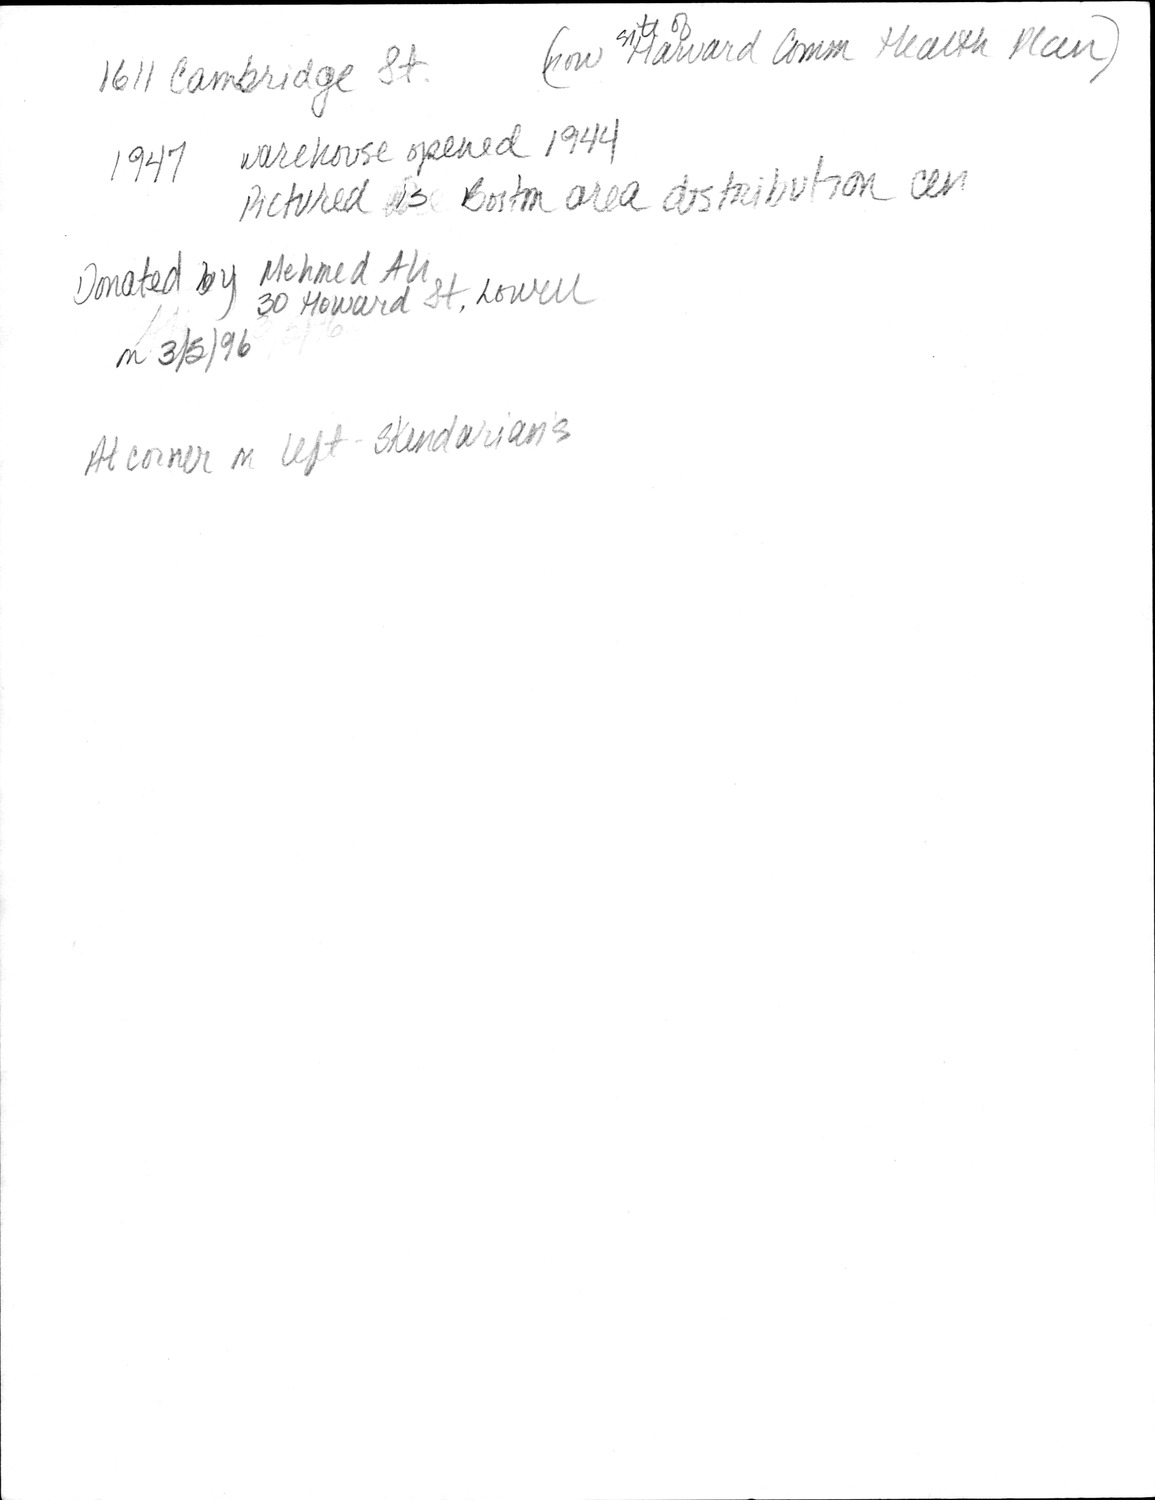 1611 Cambridge St. (now site of Harvard Comm Health Plan)
1947 warehouse opened 1944
Pictured is Boston area distribution cen
Donated by Mehmed Ali
30 Howard St, Lowell
on 3/5/96
At corner on left - Skendarian's